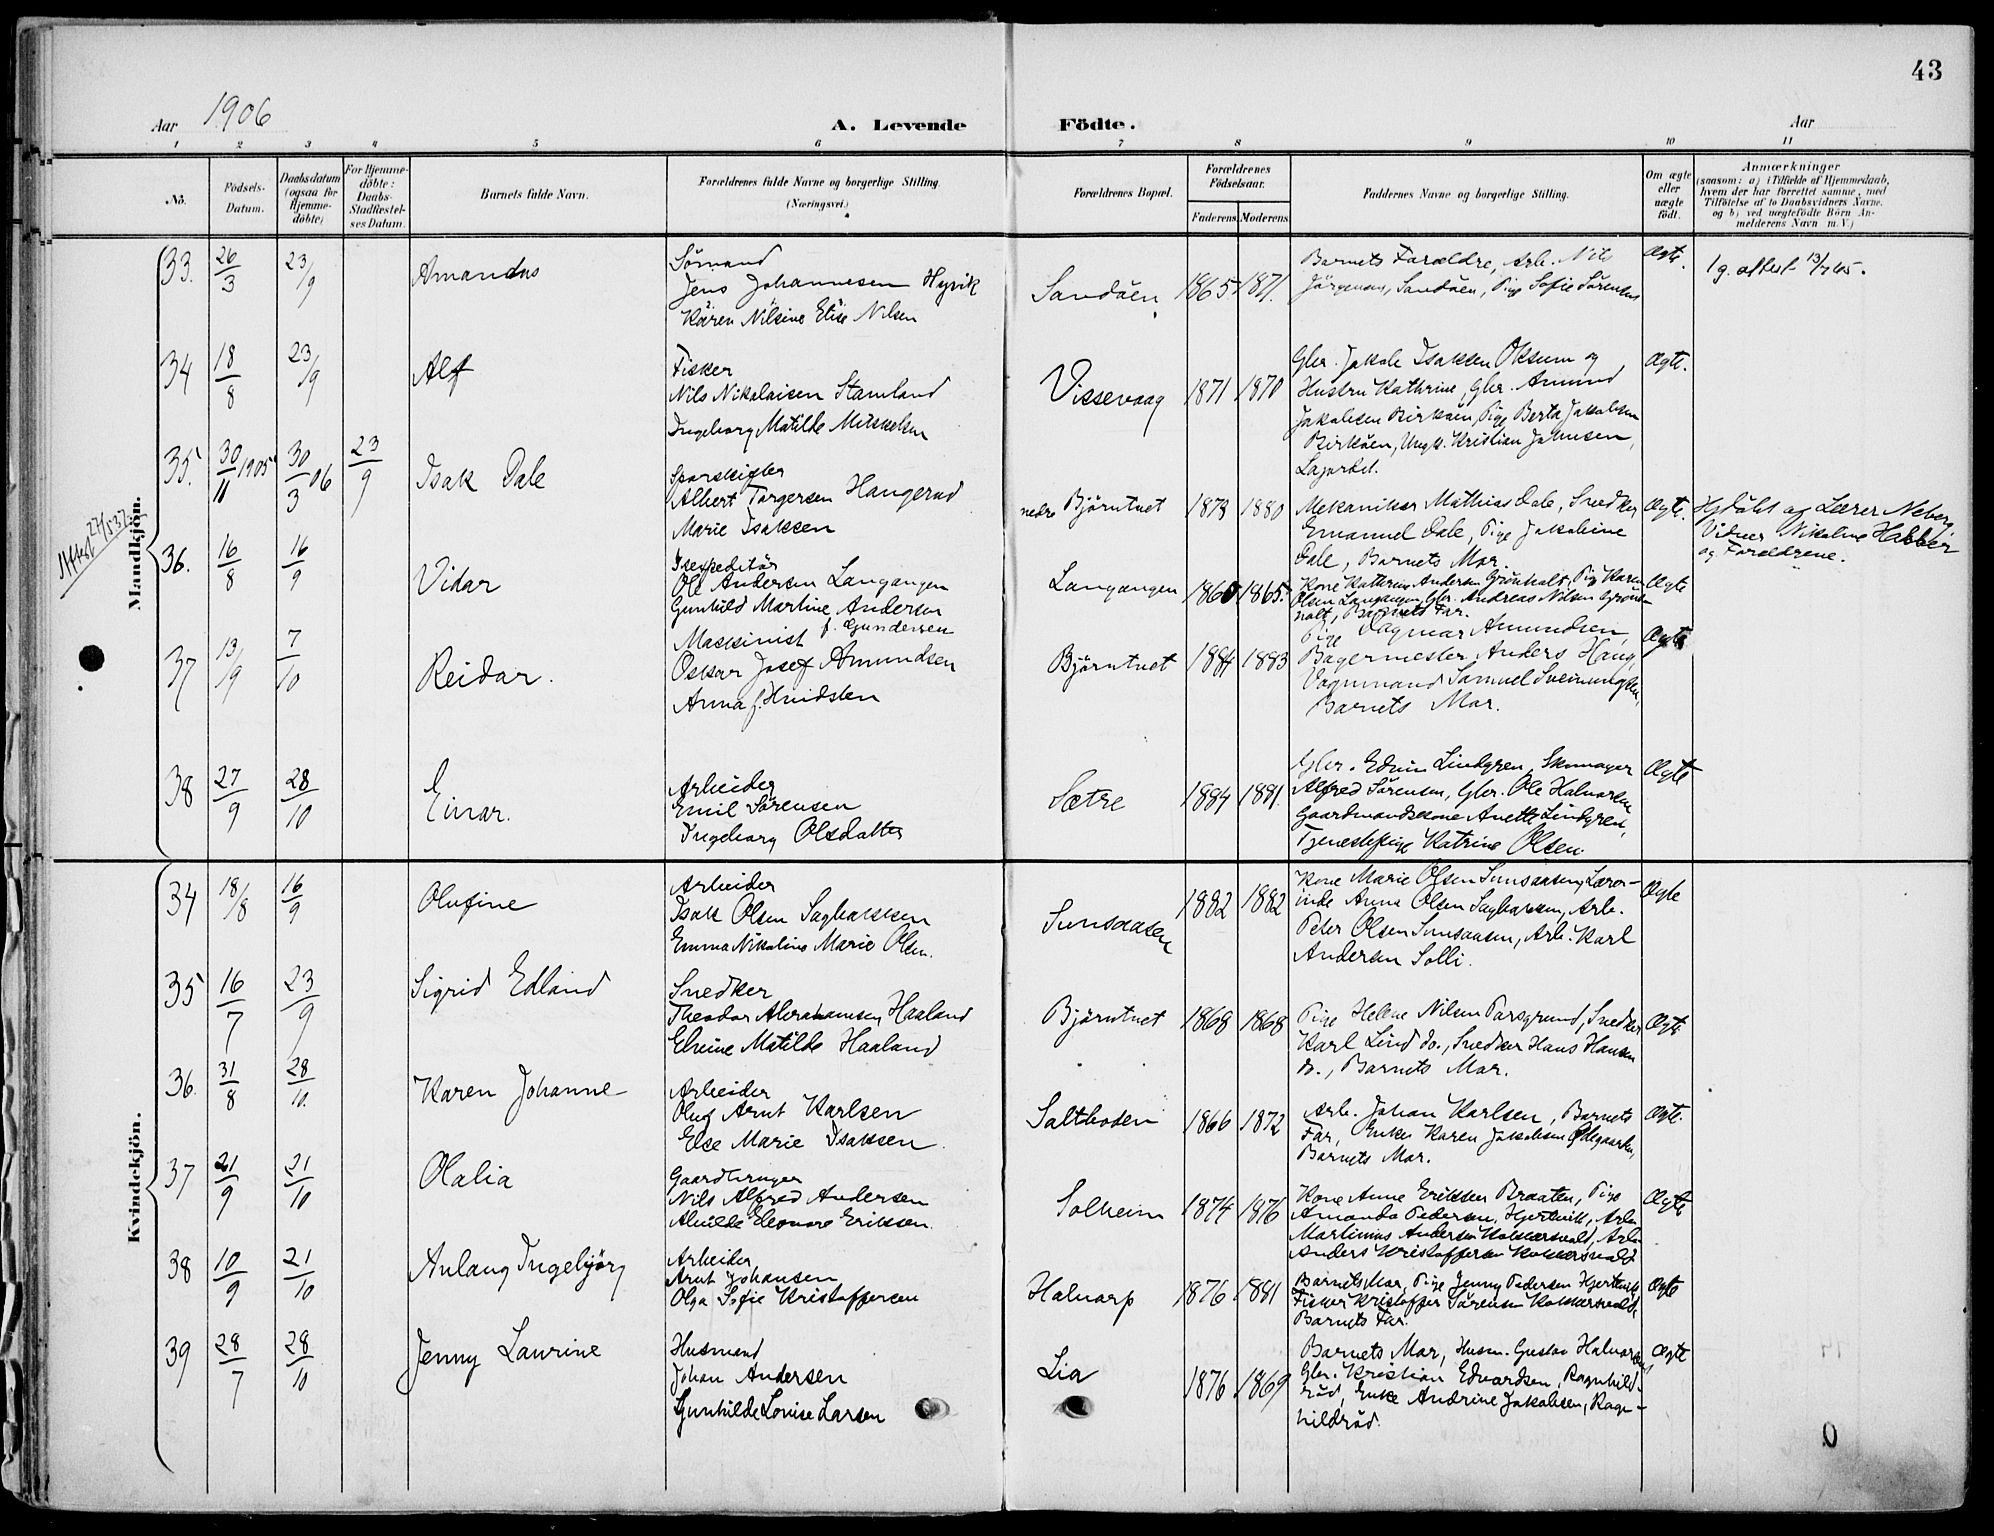 43
Aar 1906
A. Levende Födte.
Aar
1 2 3 4 5 6 7 8 9 10 11
No.
Födsels-
Datum.
Daabsdatum
(ogsaa for
Hjemme-
döbte)
For Hjemme-
döbte:
Daabs-
Stadfæstel-
ses Datum.
Barnets fulde Navn.
Forældrenes fulde Navne og borgerlige Stilling.
(Næringsvei.)
Forældrenes Bopæl.
Forældrenes
Födselsaar.
Faderens. Moderens.
Faddernes Navne og borgerlige Stilling.
Om ægte
eller
uægte
födt.
Anmærkninger
(saasom: a) i Tilfælde af Hjemmedaab,
hvem der har forrettet samme, med
Tilföielse af to Daabsvidners Navne.
og b) ved uægtefödte Börn An-
melderens Navn m. V.)
Mandkjön.
33. 26/3 23/9 Amandus
Sömand
Jens Johannesen Hyvik
Karen Nilsine Elise Nilsen
Sandöen 1865 1871.
Barnets Forældre, Arb. Nils
Jörgensen, Sandöen, Pige Sofie Sörensen
Ægte.
1 g. attest 13/7 65.
34 18/8 23/9 Alf
Fisker
Nils Nikolaisen Stamland
Ingeborg Matilde Mikkelsen
Vissevaag 1871 1870
Gbr. Jakob Isaksen Oksum og
Hustru Kathrine, Gbr. Amund
Jakobsen Birköen, Pige Berta Jakobsen
Birköen, Ungk. Kristian Johnsen,
Ægte.
35. 30/11 1905 30/3 06 23/9 Isak Dale
Albert Torgersen Haugerud
Marie Isaksen
nedre Björntvet 1878 1880
Mekaniker Mathias Dale, Snedker
Emanuel Dale, Pige Jakobine
Dale, Barnets Mor.
Ægte.
Hjdöbt af Lærer Neberg
Vidner Nikoline
og Forældrene.
Attest 27/5 37.
36. 16/8 16/9 Vidar
Isexpeditör
Ole Andersen Langangen
Gunhild Martine Andersen
f. Gundersen
Langangen 1865.
Kone Kathrine Andersen Grönholt, Pige Karen
Olsen Langangen, Gbr. Andreas Nilsen Grön-
holt, Barnets Far.
Ægte
37 13/9 7/10 Reidar.
Maskinist
Oskar Josef Amundsen
Anna f. Knidsten
Björntvet 1884 1883
Pige Dagmar Amundsen,
Bagermester Anders Haug,
Vognmand Samuel Sveinungsen,
Barnets Mor.
Ægte
38 27/9 28/10 Einar.
Arbeider
Emil Sörensen
Ingeborg Olsdatter
Sætre 1884 1881.
Gbr. Edvin Lindgren, Skomager
Alfred Sörensen, Gbr. Ole Halvorsen
Gaardmandskone Anette Lindgren,
Tjenestepige Katrine Olsen.
Ægte
Kvindekjön.
34 18/8 16/9 Olufine
Arbeider
Isak Olsen Sagbakken
Emma Nikoline Marie Olsen.
Sunsaasen 1882 1882
Kone Marie Olsen Sunsaasen, Lærer-
inde Anna Olsen Sagbakken, Arb.
Peter Olsen Sunsaasen, Arb. Karl
Andersen Solli.
Ægte
35 16/7 23/9 Sigrid Edland
Snedker
Theodor Abrahamsen Haaland
Elveine Matilde Haaland
Björntvet 1868 1868
Pige Helene Nilsen Porsgrund, Snedker
Karl Lind do., Snedker Hans Hansen
do., Barnets Mor.
Ægte
36. 31/8 28/10. Karen Johanne
Arbeider
Oluf Arnt Karlsen
Else Marie Isaksen.
Saltboden 1866 1872
Arb. Johan Karlsen, Barnets
Far, Enke Karen Jakobsen Ödegaarden,
Barnets Mor.
Ægte.
37 21/9 21/10 Olalia
Gaardbruger
Nils Alfred Andersen
Alvilde Eleonore Eriksen.
Solheim 1874 1876
Kone Anne Eriksen Braaten, Pige
Amanda Pedersen, Hjertvik, Arb.
Martinius Andersen Kokkersvold, Arb.
Anders Kristoffersen Kokkersvold.
Ægte
38 10/9 21/10 Anlaug Ingebjörg
Arbeider
Arnt Johansen
Olga Sofie Kristoffersen
Halvarp 1876 1881
Barnets Mor, Pige Jenny Pedersen Hjertvik,
Fisker Kristoffer Sörensen Kokkersvold,
Barnets Far.
Ægte
39 28/7 28/10 Jenny Laurine
Husmand
Johan Andersen
Gunhilde Lovise Larsen
Lia 1876 1869
Barnets Mor, Husm. Gustav Halvorsen,
Gbr. Kristian Edvardsen, Ragnhild-
röd, Enke Andrine Jakobsen, Ragn-
hildröd.
Ægte